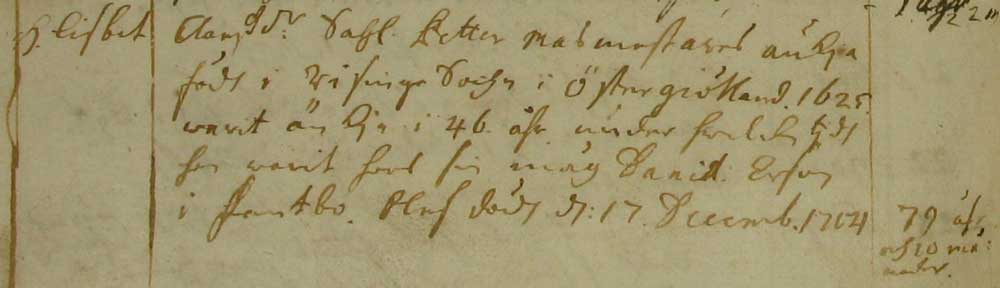 H. Lisbet
Sahl. Petter Masmestares änkja
född i Risinge Sochn i Östergiötland. 1625.
warit änkja i 46 åhr under hwilken tijdh
hon warit hoos sin måg Daniel Ersson
i bo. Blef dödh d: 17 Decemb. 1704
79 åhr,
och 10 må:
nader.
22